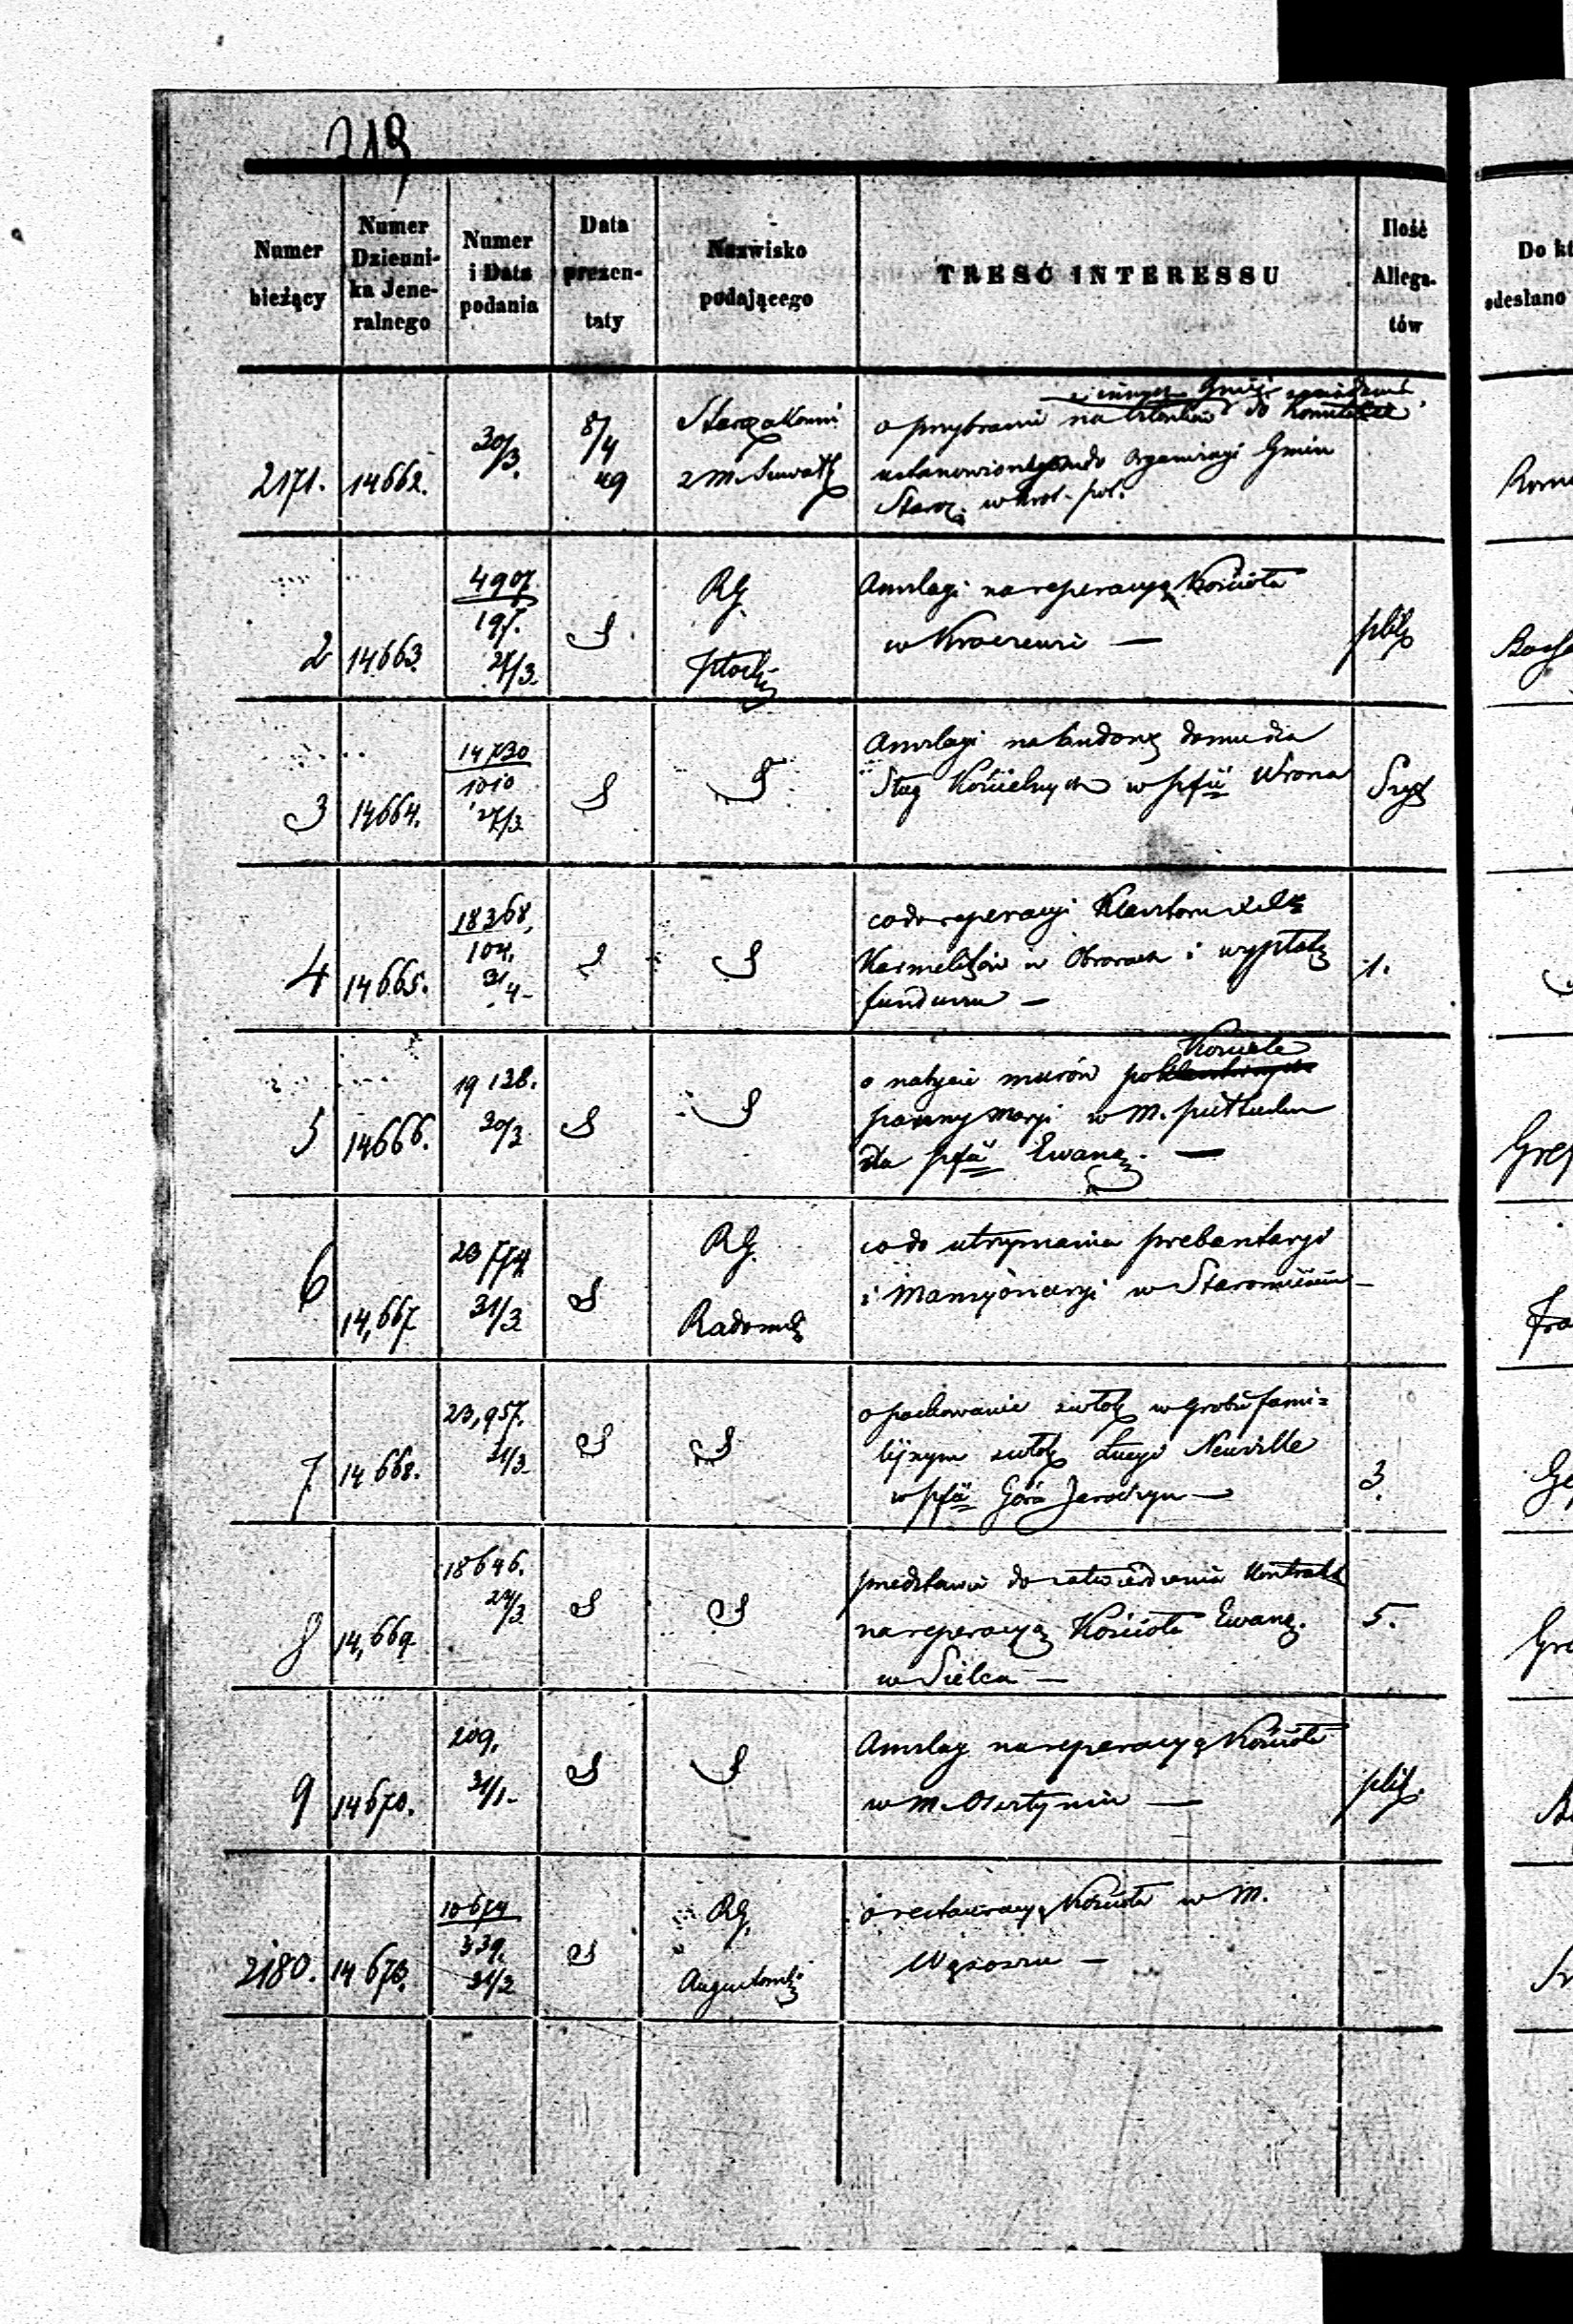 219
Numer bieżący
Numer Dzienni-ka Jene-ralnego
Numer i Data podania
Data prezen-taty
Nazwisko podającego
TRESĆ INTERESSU
Ilość Allega-tów
Do kt
odesłano
2171. 14662. 30/3. 8/4 49
Starozakonni
z M. Suwałk
o przybranie na członków do Komitetu
ustanowionego do Organizacyi Gmin
Staroz. w Krol. pol.
2 14663. 4907. 197. 27/3.
RG.
Płocki
Anszlagi na reperacyą Kościoła
w
3 14664. 14730 1010 27/3
Anszlagi na budowę domu dla
Sług Kościelnych w pfii Wrona
4 14665. 18368, 104. 31 4
co do reperacyi Klasztoru
Karmelitów w Oborach i wypłaty
funduszu —
1.
5 14666. 19128. 30/3
o nabycie murów po Kościele
panny Maryi w M. Pułtusku
dla pfii Ewang. —
6 14,667 23774 31/3
RG.
Radomski
co do utrzymania prebentaryi
i Mansyonaryi w
7. 14668. 23,957. 31/3
o pochowanie zwłok w grobie fami=
lijnym zwłok Łucyi Neuville
w pfii Góra Jaroczyn —
3.
8 14,669 18646. 24/3
przedstawia do zatwierdzenia Kontrakt
na reperacyą Kościoła Ewang.
w Sielcu —
5.
9 14670. 209. 31/1
Anszlag na reperacyą Kościoła
w M.
2180. 14670. 10674 339. 31/3
RG.
Augustowski
o restauracyą Kościoła w M.
Wąsoszu —